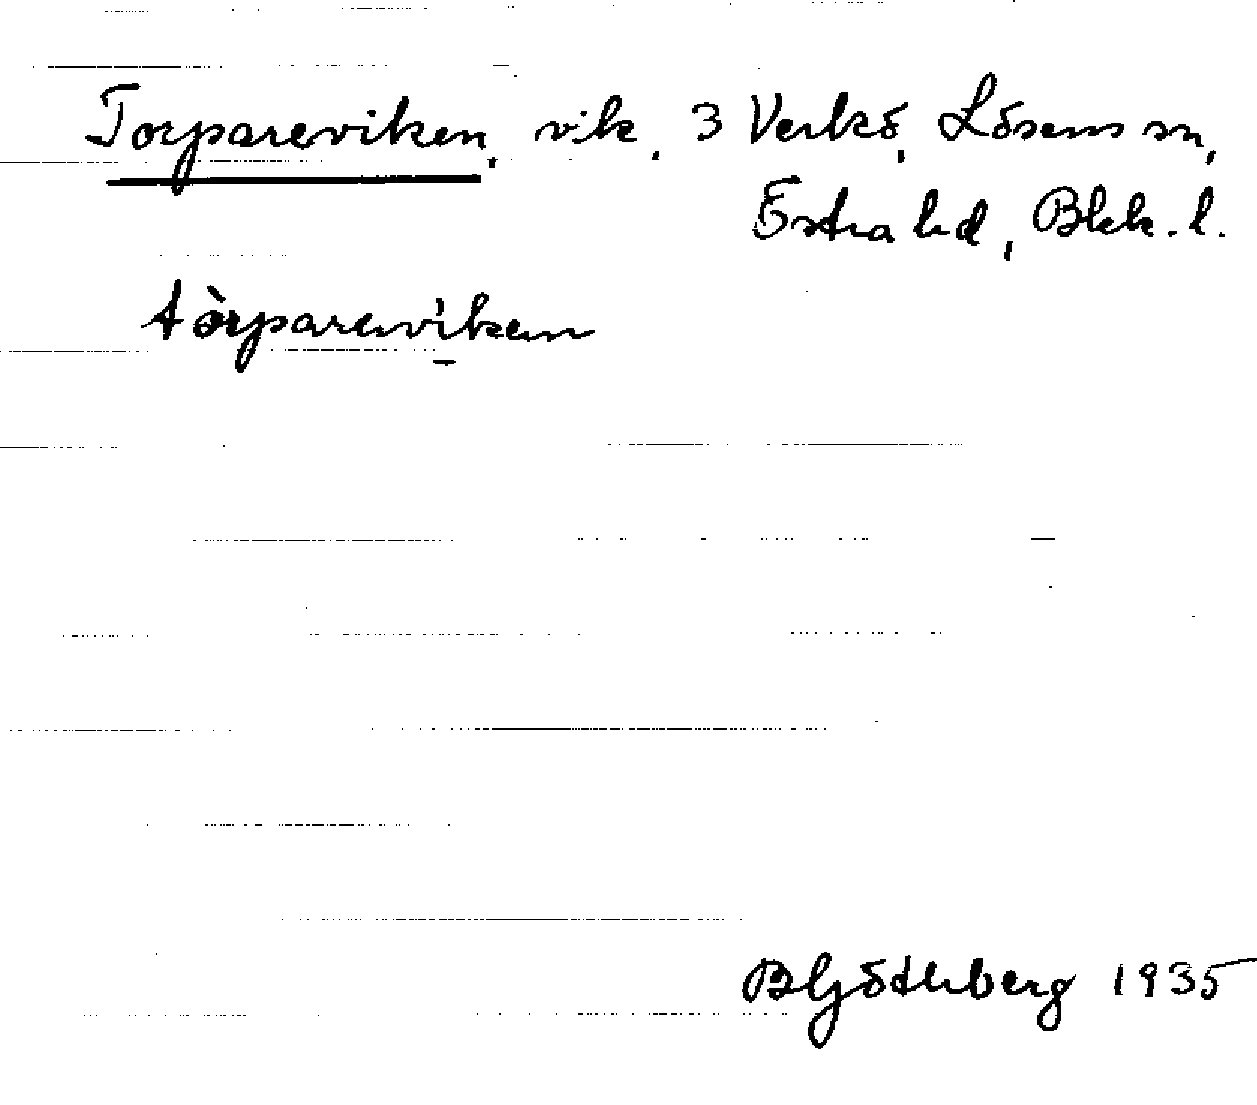 Torpareviken, vik, 3 Verkö, Lösens sn,
Östra hd, Blek. l.
tòrparevìken
B Göthberg 1935